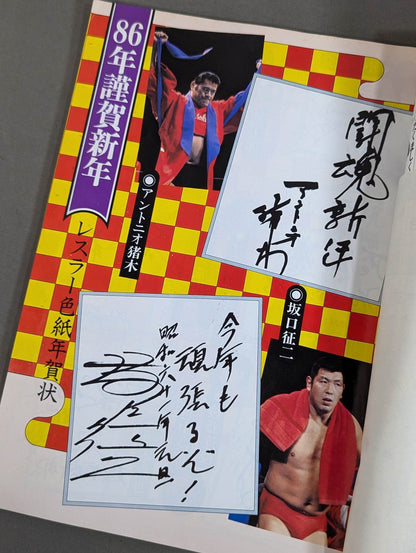 86年謹賀新年
レスラー色紙年賀状
●アントニオ猪木
闘魂新年
アントニオ
猪木
●坂口征二
今年も
頑張るぞ!
昭和六十一年元旦